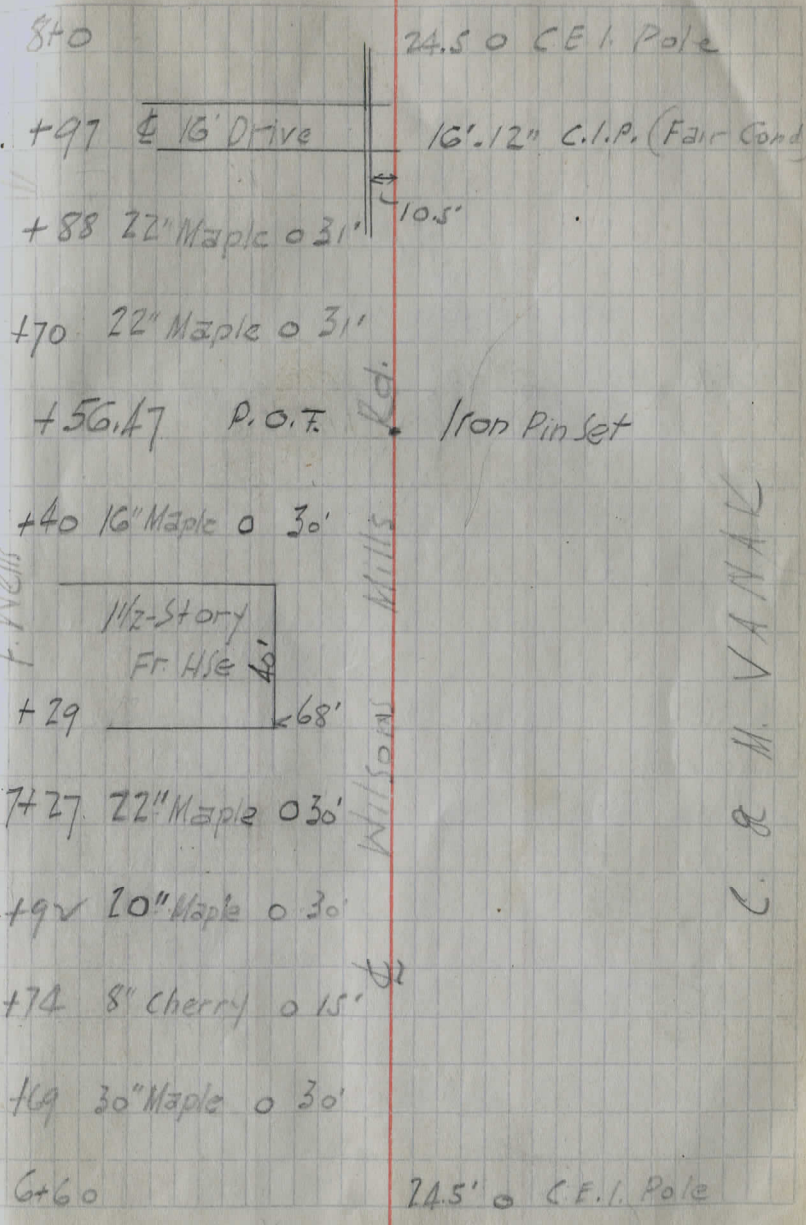 8+0 24.5 o C.E.I. Pole
+97 ℄ 16' Drive 16'-12" C.I.P. (Fair Cond)
10.5'
+88 22" Maple o 31'
+70 22" Maple o 31'
+56.47 P.O.T. Iron Pin Set
+40 16" Maple o 30'
1 1/2-Story
Fr. Hse 40'
+29 68'
7+27 22" Maple o 30'
+92 20" Maple o 30'
+74 8" Cherry o 15'
+69 30" Maple o 30'
6+60 24.5' o C.E.I. Pole
℄ Wilsons Mills Rd.
C. & M. VANAK